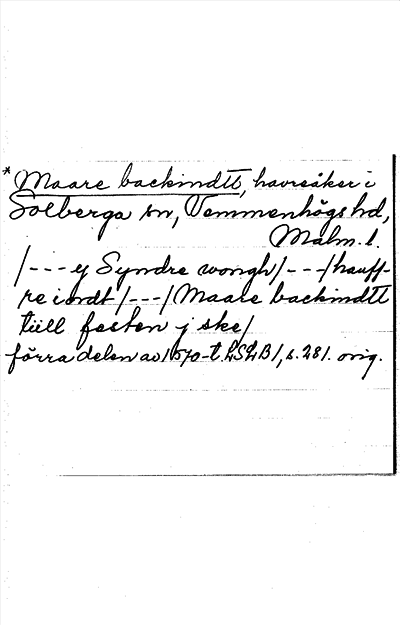 * Maare backindtt, havreåker i
Solberga sn, Vemmenhögs hd,
Malm. l.
/--- y Syndre wongh/---/hauff-
re iordt/---/Maare backindtt
tüll festen j ske/
förra delen av 1570-t. LSLB/, s. 281. orig.